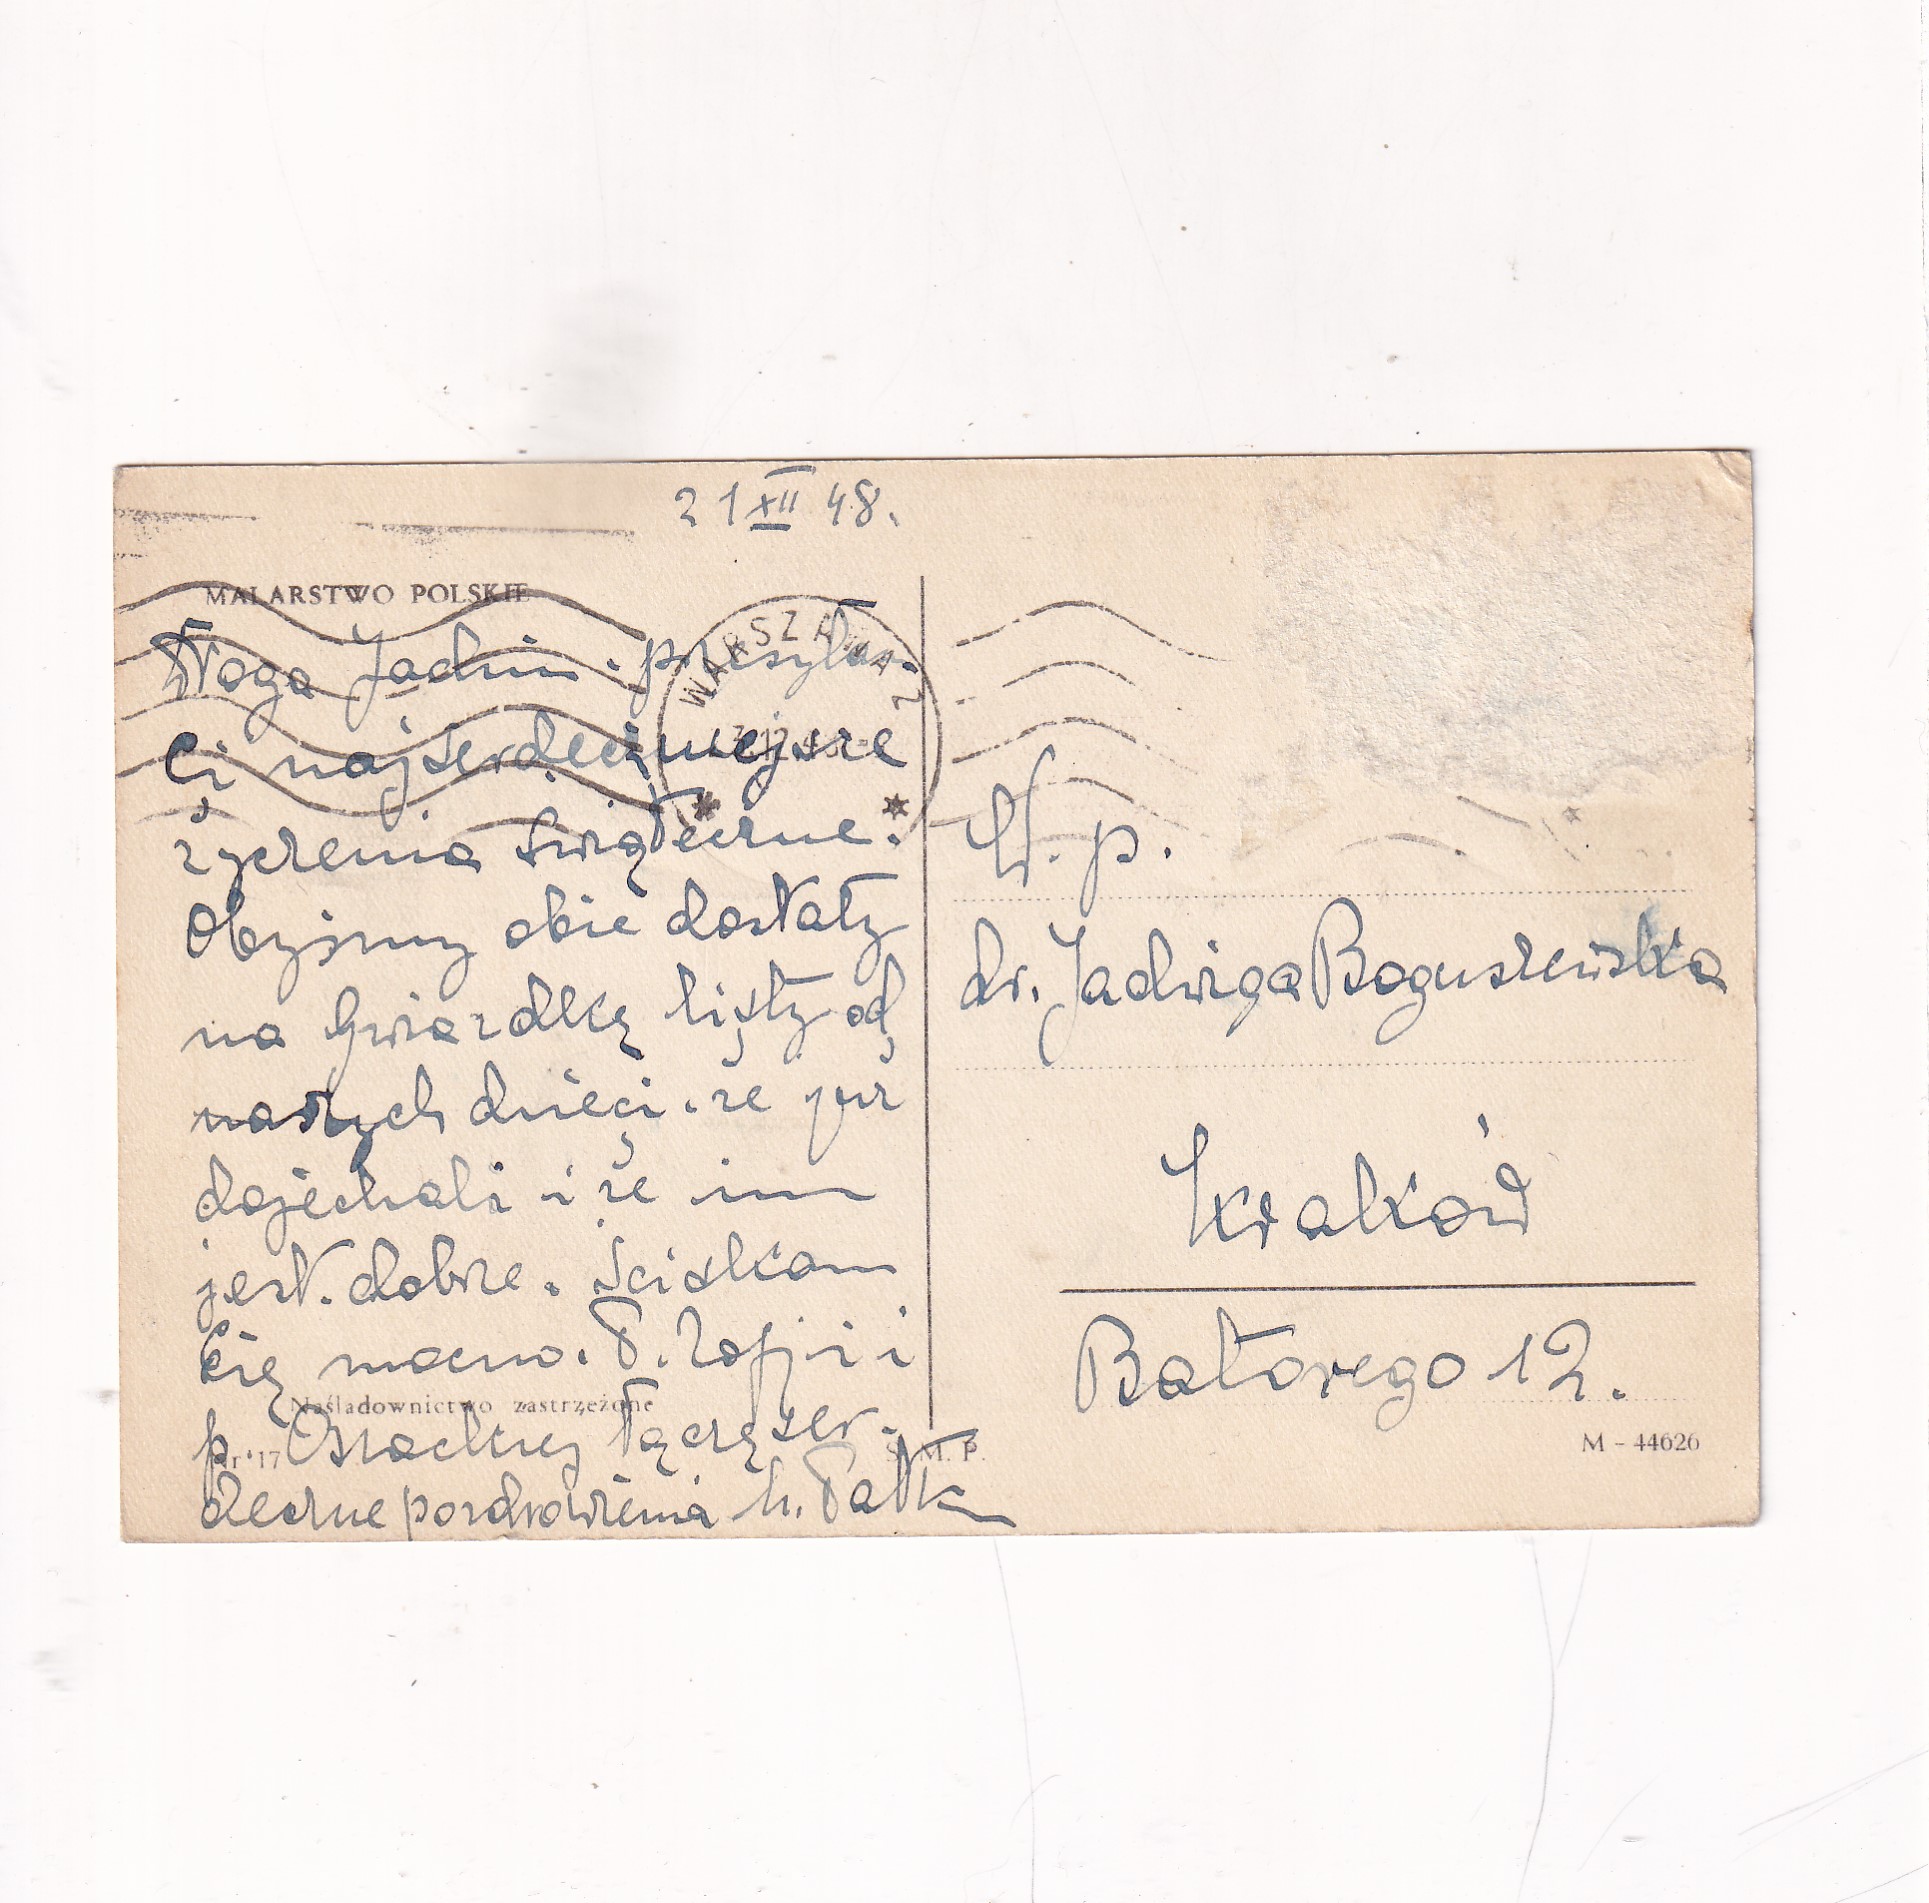 21 XII 48.
MALARSTWO POLSKIE
WARSZAWA 2
Droga Jadziu. przesyłam
Ci najserdeczniejsze
życzenia świąteczne.
Obyśmy obie dostały
na Gwiazdkę listy od
naszych dzieci. że już
dojechali i że im
jest. dobrze. Ściskam
Cię mocno. P. Zofji i
p. łączę ser-
deczne pozdrowienia
Naśladownictwo zastrzeżone
Nr 17
S. M. P.
W. p.
dr. Jadwiga Boguszewska
Kraków
Batorego 12.
M - 44626